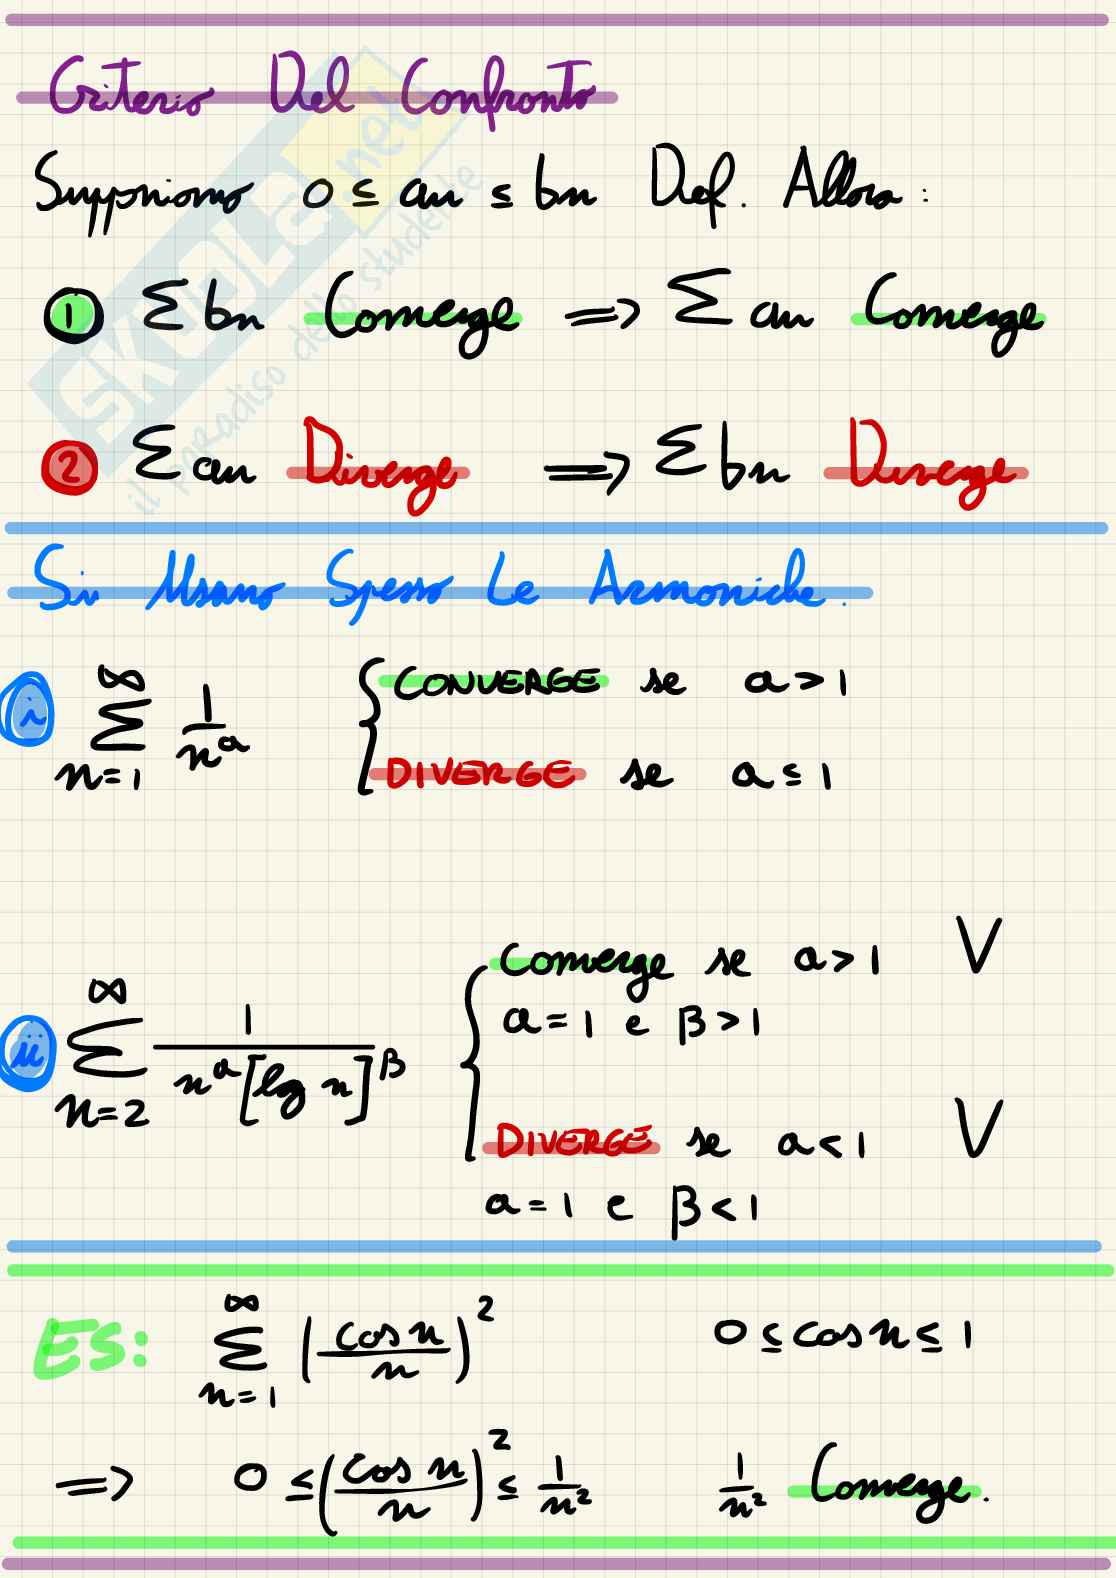 Criterio Del Confronto
Supponiamo 0 ≤ an ≤ bn Def. Allora :
1 Σ bn Converge ⟹ Σ an Converge
2 Σ an Diverge ⟹ Σ bn Diverge
Si Usano Spesso Le Armoniche.
i ∞ Σ n=1 1/n^a { CONVERGE se a > 1
DIVERGE se a ≤ 1
ii ∞ Σ n=2 1/(n^a [log n]^β) { Converge se a > 1 V
a = 1 e β > 1
DIVERGE se a < 1 V
a = 1 e β < 1
ES: ∞ Σ n=1 (cos n / n)^2 0 ≤ cos n ≤ 1
⟹ 0 ≤ (cos n / n)^2 ≤ 1/n^2 1/n^2 Converge.
SKUOLA.net
il paradiso dello studente